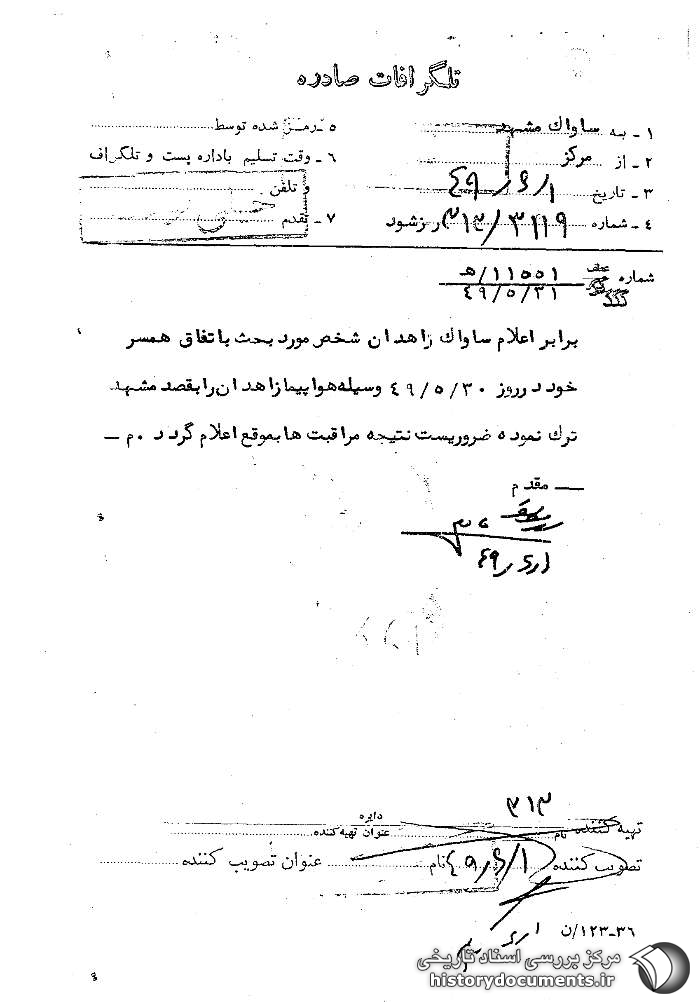 تلگرافات صادره
۱ - به ساواک مشهد
۲ - از مرکز
۳ - تاریخ ۴۹/۶/۱
۴ - شماره ۳۱۲/۳۱۱۹ رمز شود
۵ - رمز شده توسط
۶ - وقت تسلیم باداره پست و تلگراف
و تلفن
۷ - تقدم
شماره ۱۱۵۵۱/هـ
۴۹/۵/۳۱
برابر اعلام ساواک زاهدان شخص مورد بحث باتفاق همسر
خود در روز ۴۹/۵/۳۰ وسیله هواپیما زاهدان را بقصد مشهد
ترک نموده ضروریست نتیجه مراقبت ها بموقع اعلام گردد .م –
— مقدم
۴۹/۶/۱
۳۱۲
تهیه کننده نام
دایره
عنوان تهیه کننده
تصویب کننده ۴۹/۶/۱ نام
عنوان تصویب کننده
۳۶-۱۲۳/ن
مرکز بررسی اسناد تاریخی
historydocuments.ir